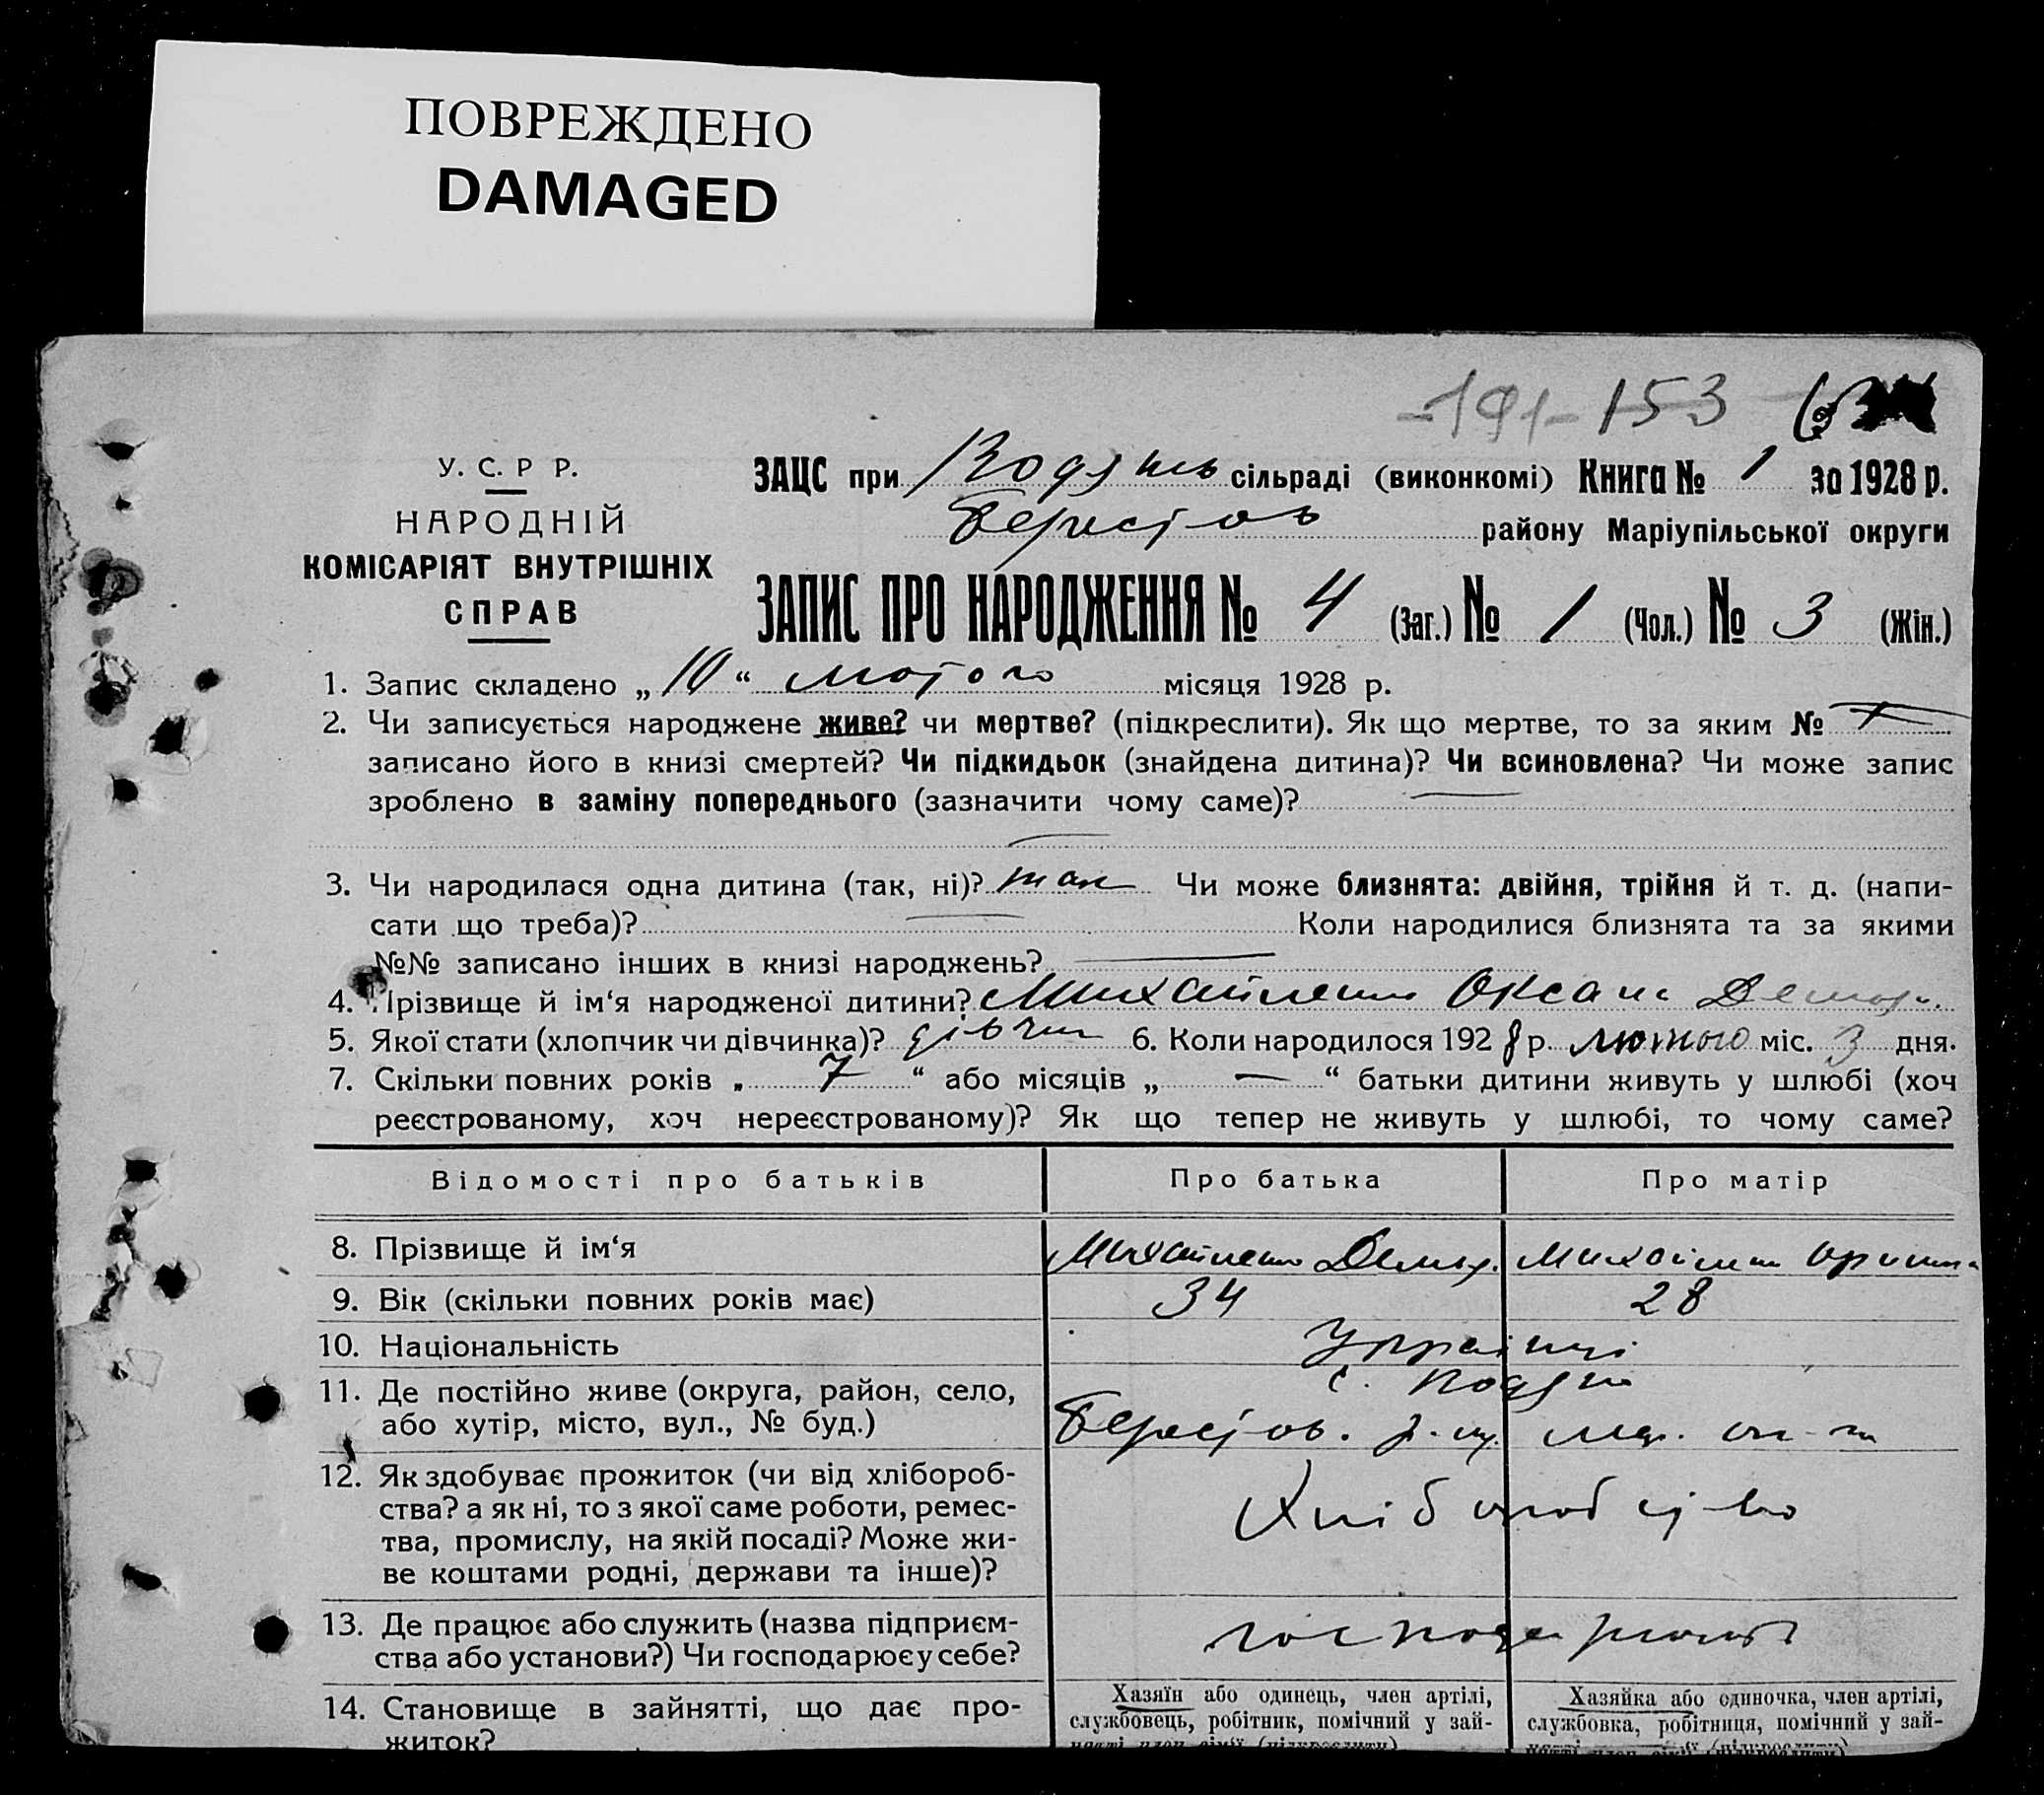 ПОВРЕЖДЕНО
DAMAGED
-191- 153
У. С. Р Р.
НАРОДНІЙ
КОМІСАРІЯТ ВНУТРІШНІХ
СПРАВ
ЗАЦС при сільраді (виконкомі) Книга № 1 за 1928 р.
Берестов району Маріупільської округи
ЗАПИС ПРО НАРОДЖЕННЯ № 4 (Заг.) № 1 (Чол.) № 3 (Жін.)
1. Запис складено „ 10 “ лютого місяця 1928 р.
2. Чи записується народжене живе? чи мертве? (підкреслити). Як що мертве, то за яким №
записано його в книзі смертей? Чи підкидьок (знайдена дитина)? Чи всиновлена? Чи може запис
зроблено в заміну попереднього (зазначити чому саме)? —
—
3. Чи народилася одна дитина (так, ні)? так Чи може близнята: двійня, трійня й т. д. (напи-
сати що треба)? — Коли народилися близнята та за якими
№№ записано інших в книзі народжень? —
4. Прізвище й ім‘я народженої дитини? Михайленко Оксана
5. Якої стати (хлопчик чи дівчинка)? дівчин 6. Коли народилося 192 8 р. лютого міс. 3 дня.
7. Скільки повних років „ 7 “ або місяців „ — “ батьки дитини живуть у шлюбі (хоч
реєстрованому, хоч нереєстрованому)? Як що тепер не живуть у шлюбі, то чому саме?
Відомості про батьків Про батька Про матір
8. Прізвище й ім‘я Михайленко Демид. Михайленко Орина
9. Вік (скільки повних років має) 34 28
10. Національність Українці
11. Де постійно живе (округа, район, село, с.
або хутір, місто, вул., № буд.) Берестов. р-ну. Мар. ок-ги
12. Як здобуває прожиток (чи від хлібороб-
ства? а як ні, то з якої саме роботи, ремес- Хліборобство
тва, промислу, на якій посаді? Може жи-
ве коштами родні, держави та інше)?
13. Де працює або служить (назва підприєм-
ства або установи?) Чи господарює у себе? господарюють
14. Становище в зайнятті, що дає про-
житок?
Хазяїн або одинець, член артілі,
службовець, робітник, помічний у зай-
нятті член сім'ї (підкреслити)
Хазяйка або одиночка, член артілі,
службовка, робітниця, помічний у зай-
нятті член сім'ї (підкреслити)